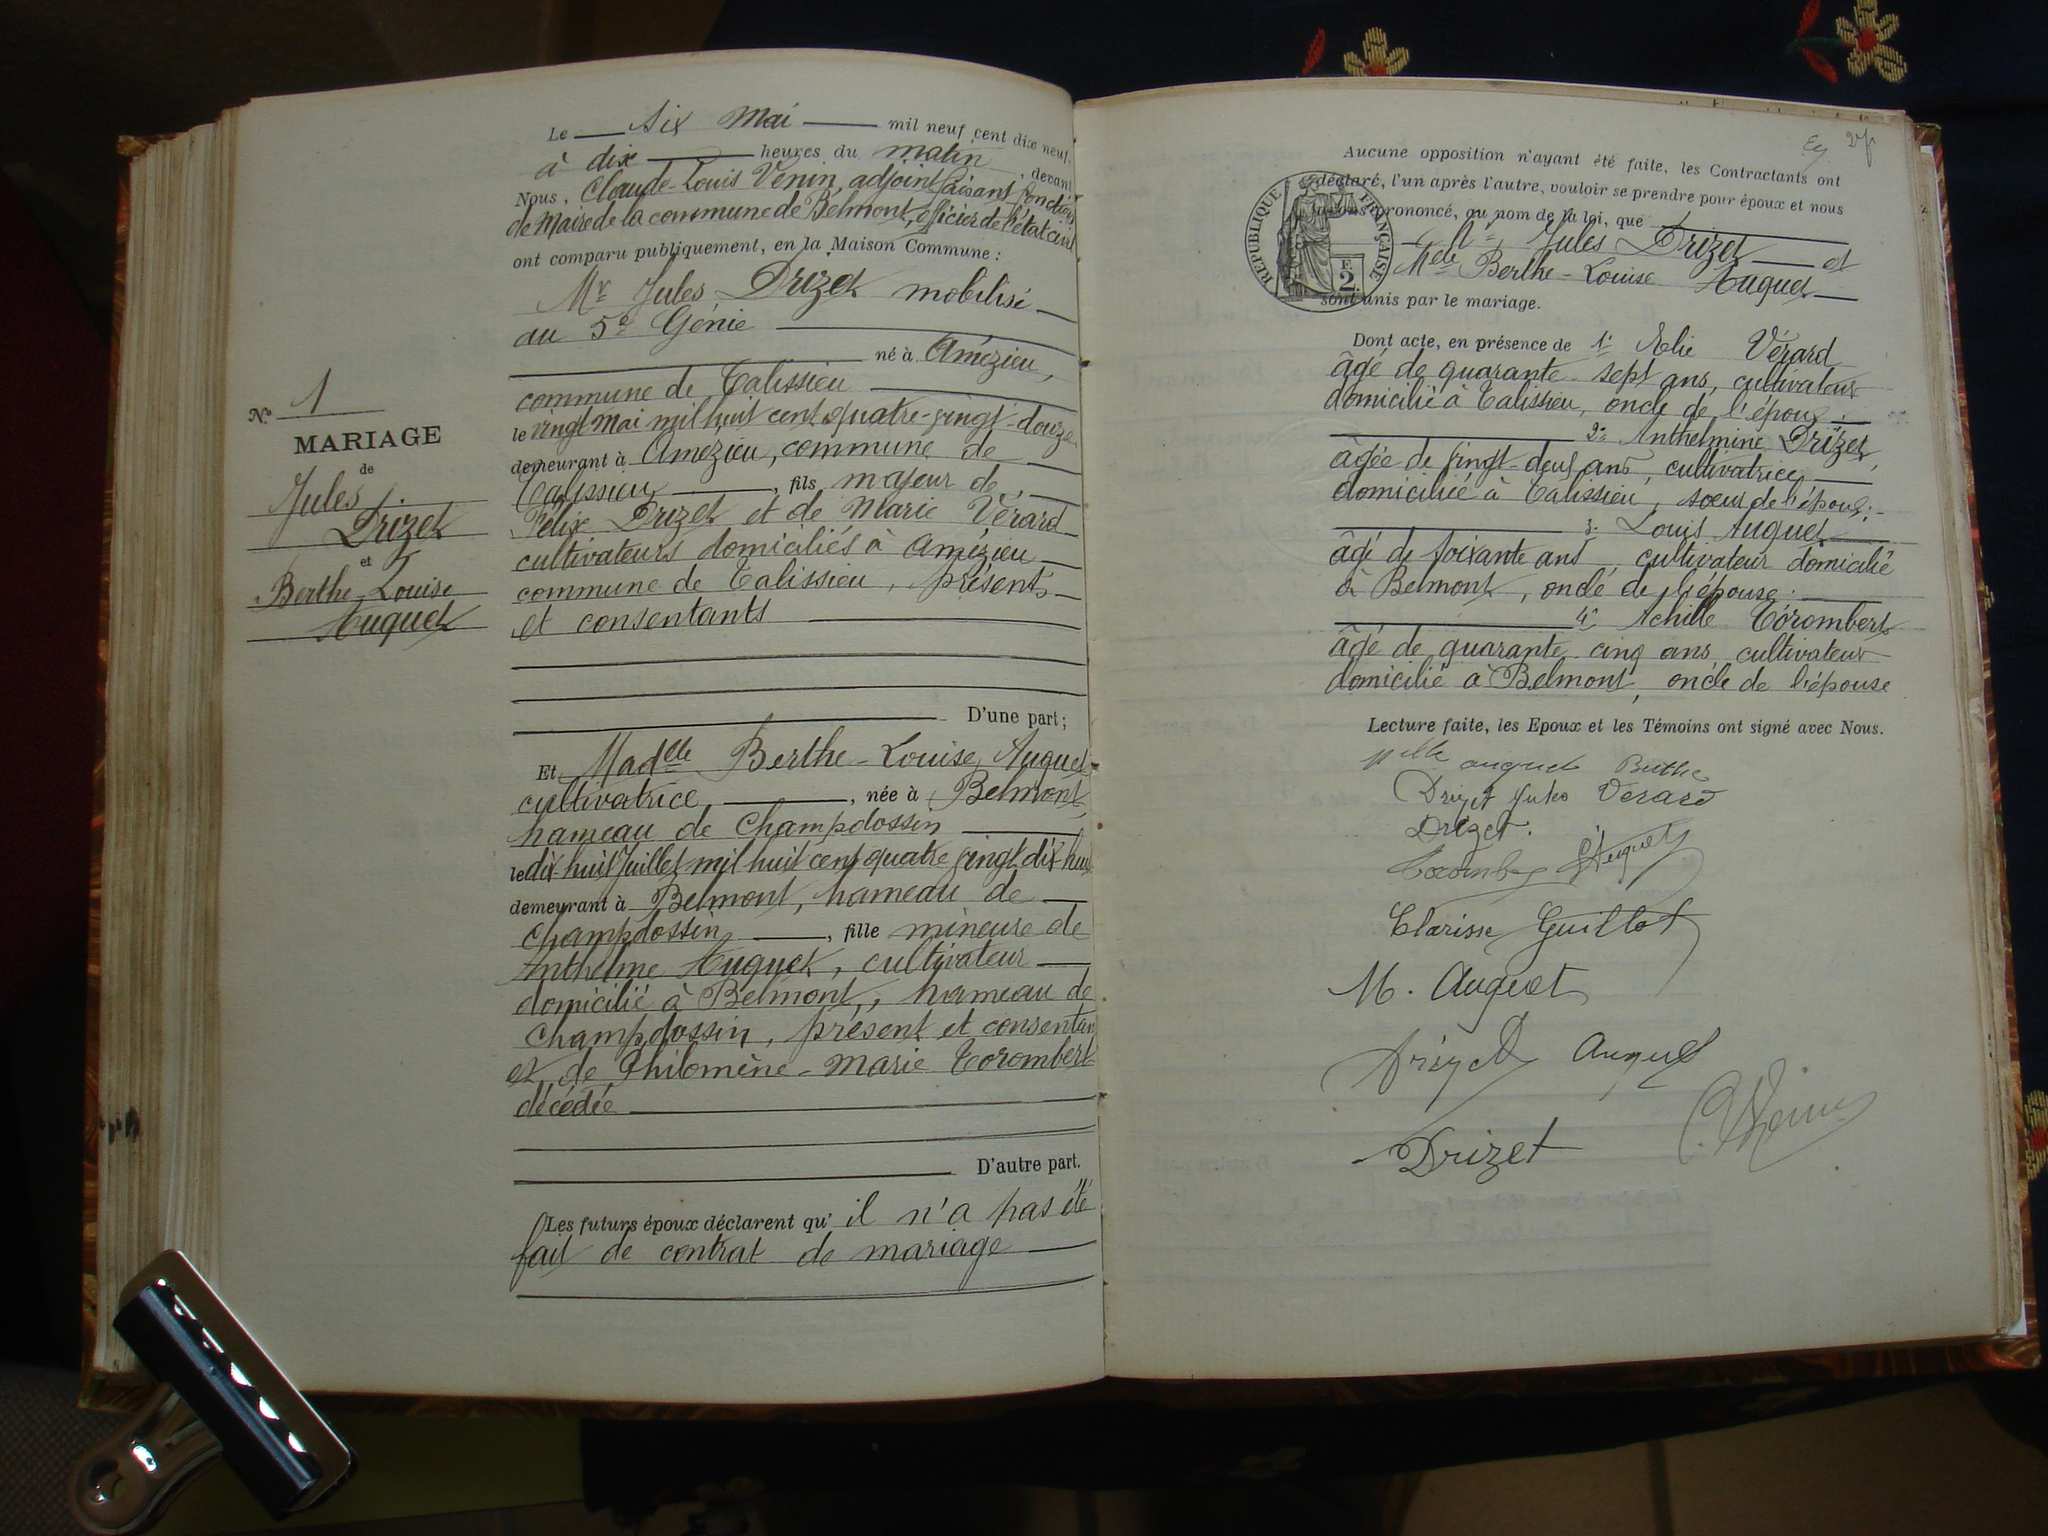 N° 1
MARIAGE
de
Jules
Drizet
et
Berthe-Louise
Auguet
Le six Mai mil neuf cent dix neuf,
à dix heures du matin, devant
Nous, Claude-Louis Venin, adjoint faisant fonction
de Maire de la commune de Belmont, officier de l'état civil
ont comparu publiquement, en la Maison Commune :
Mr Jules Drizet mobilisé
au 5e Génie
né à Amézieu,
commune de Talissieu
le vingt Mai mil huit cent quatre-vingt-douze
demeurant à Amézieu, commune de
Talissieu, fils majeur de
Félix Drizet et de Marie Vérard
cultivateurs domiciliés à Amézieu
commune de Talissieu, présents
et consentants
D'une part;
Et Madelle Berthe-Louise, Auguet
cultivatrice, née à Belmont,
hameau de Champdossin
le dix-huit Juillet mil huit cent quatre vingt dix huit
demeurant à Belmont, hameau de
Champdossin, fille mineure de
Anthelme Auguet, cultivateur
domicilié à Belmont, hameau de
Champdossin, présent et consentan
et de Philomène-Marie Corombert
décédée
D'autre part.
Les futurs époux déclarent qu' il n'a pas été
fait de contrat de mariage
Aucune opposition n'ayant été faite, les Contractants ont
déclaré, l'un après l'autre, vouloir se prendre pour époux et nous
avons prononcé, au nom de la loi, que
Mr Jules Drizet et
Melle Berthe-Louise Auguet
sont unis par le mariage.
RÉPUBLIQUE FRANÇAISE
2 F.
Dont acte, en présence de 1° Elie Vérard
âgé de quarante-sept ans, cultivateur
domicilié à Talissieu, oncle de l'époux;
2° Anthelmine Drizet,
âgée de vingt-deux ans, cultivatrice,
domiciliée à Talissieu, sœur de l'époux;
3° Louis Auguet
âgé de soixante ans, cultivateur domicilié
à Belmont, oncle de l'épouse;
4° Achille Corombert
âgé de quarante-cinq ans, cultivateur
domicilié à Belmont, oncle de l'épouse
Lecture faite, les Epoux et les Témoins ont signé avec Nous.
Melle auguet Berthe
Drizet Jules Vérard
Drizet.
Corombert Auguet
Clarisse Guillot
M. Auguet
Drizet Auguet
Drizet
C. Venin